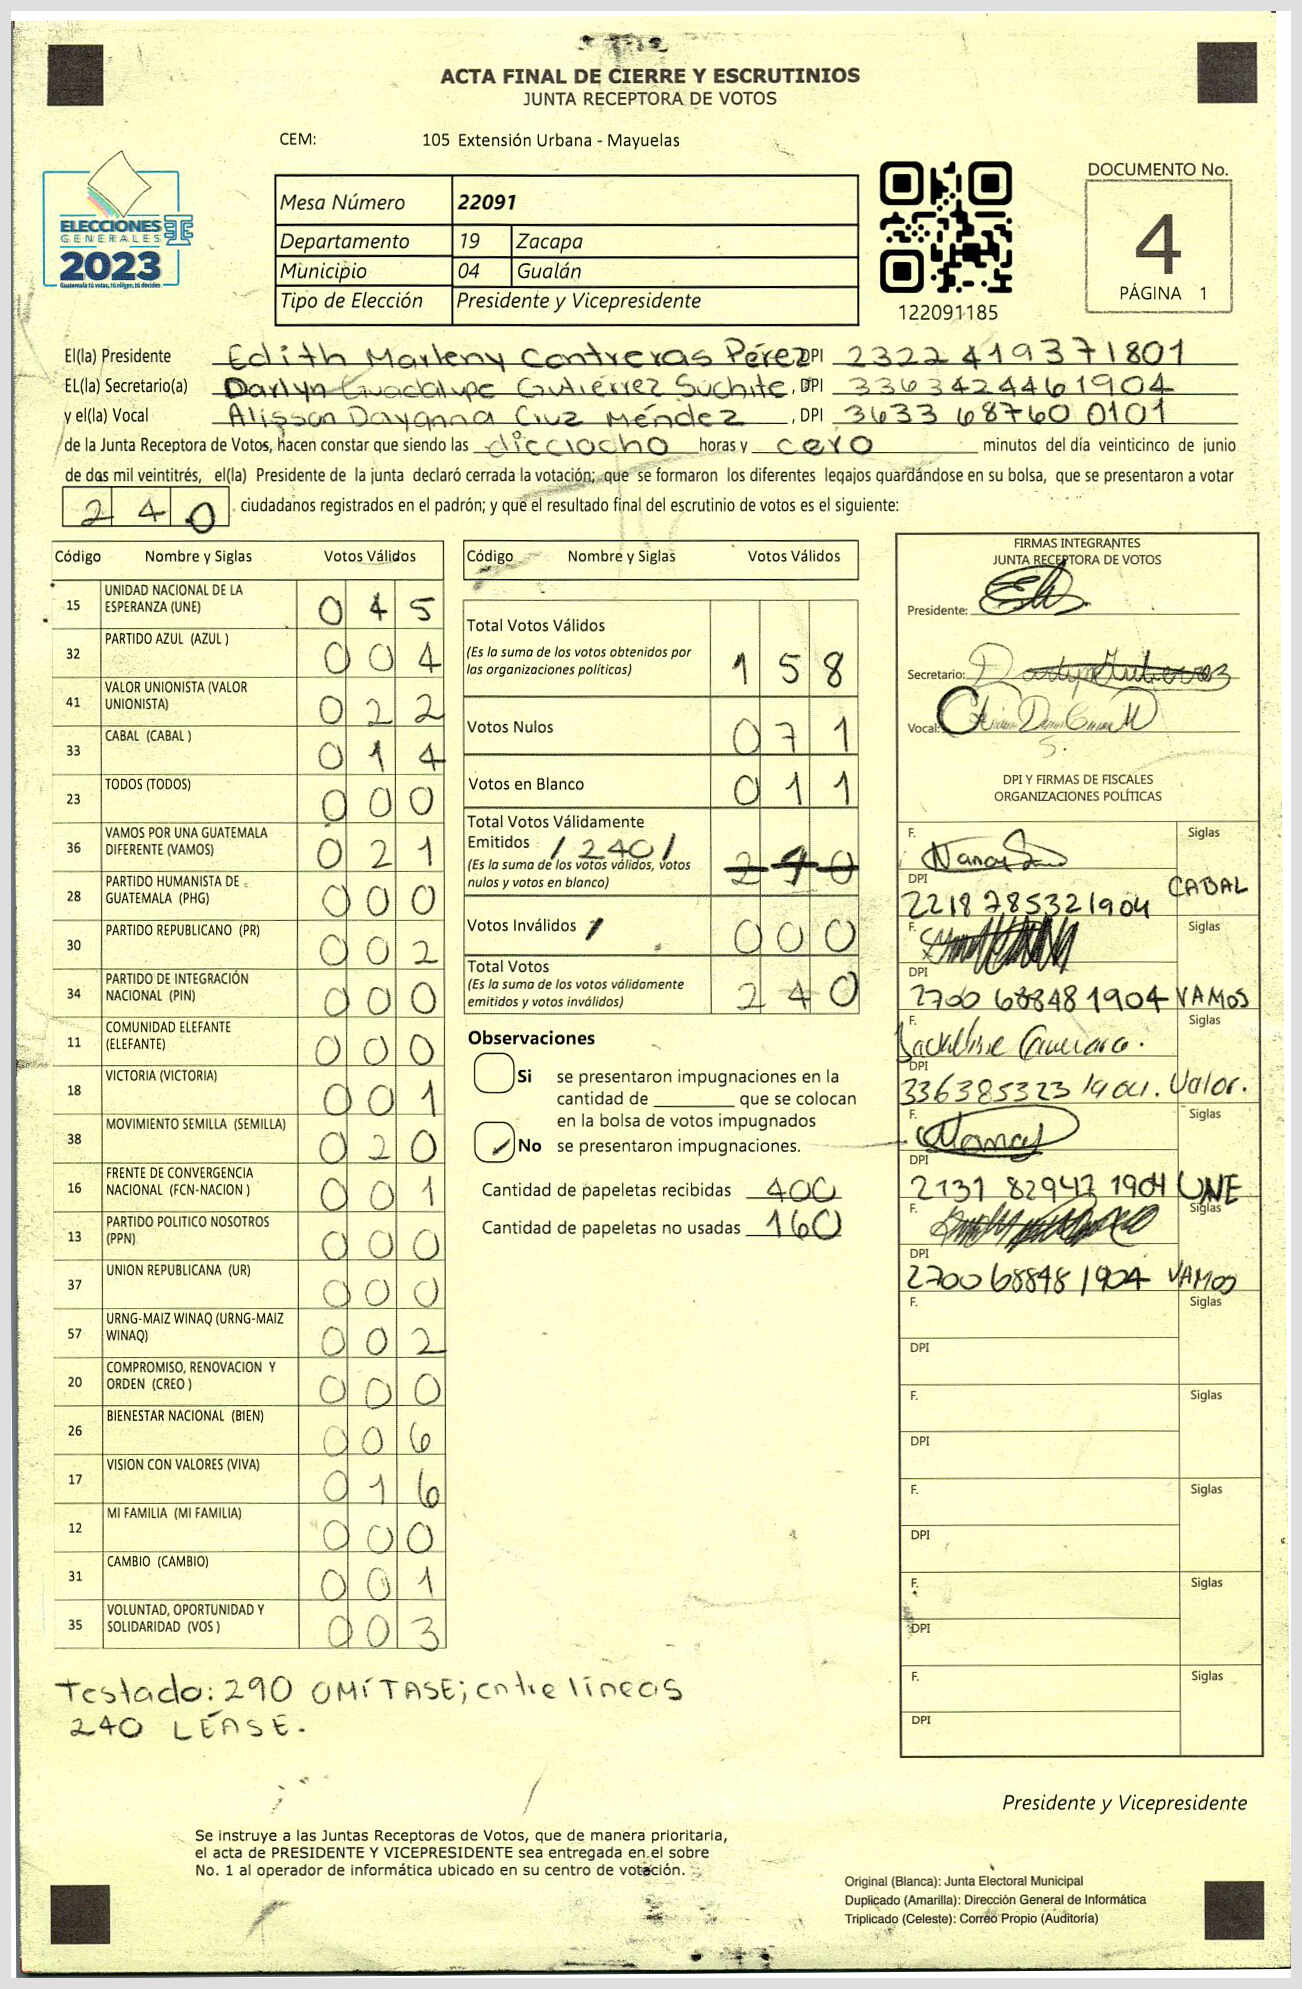 ACTA FINAL DE CIERRE Y ESCRUTINIOS
JUNTA RECEPTORA DE VOTOS
CEM: 105 Extensión Urbana - Mayuelas
ELECCIONES
GENERALES
2023
Guatemala tú votas, tú eliges, tú decides
Mesa Número 22091
Departamento 19 Zacapa
Municipio 04 Gualán
Tipo de Elección Presidente y Vicepresidente
122091185
DOCUMENTO No.
4
PÁGINA 1
El(la) Presidente Edith Marleny Contreras Pérez DPI 2322419371801
EL(la) Secretario(a) Darlyn Guadalupe Gutiérrez Suchite, DPI 3363424461904
y el(la) Vocal Alisson Dayanna Cruz Méndez, DPI 3633 68760 0101
de la Junta Receptora de Votos, hacen constar que siendo las dieciocho horas y cero minutos del día veinticinco de junio
de dos mil veintitrés, el(la) Presidente de la junta declaró cerrada la votación; que se formaron los diferentes legajos guardándose en su bolsa, que se presentaron a votar
240 ciudadanos registrados en el padrón; y que el resultado final del escrutinio de votos es el siguiente:
Código Nombre y Siglas Votos Válidos
15 UNIDAD NACIONAL DE LA ESPERANZA (UNE) 0 4 5
32 PARTIDO AZUL (AZUL ) 0 0 4
41 VALOR UNIONISTA (VALOR UNIONISTA) 0 2 2
33 CABAL (CABAL ) 0 1 4
23 TODOS (TODOS) 0 0 0
36 VAMOS POR UNA GUATEMALA DIFERENTE (VAMOS) 0 2 1
28 PARTIDO HUMANISTA DE GUATEMALA (PHG) 0 0 0
30 PARTIDO REPUBLICANO (PR) 0 0 2
34 PARTIDO DE INTEGRACIÓN NACIONAL (PIN) 0 0 0
11 COMUNIDAD ELEFANTE (ELEFANTE) 0 0 0
18 VICTORIA (VICTORIA) 0 0 1
38 MOVIMIENTO SEMILLA (SEMILLA) 0 2 0
16 FRENTE DE CONVERGENCIA NACIONAL (FCN-NACION ) 0 0 1
13 PARTIDO POLITICO NOSOTROS (PPN) 0 0 0
37 UNION REPUBLICANA (UR) 0 0 0
57 URNG-MAIZ WINAQ (URNG-MAIZ WINAQ) 0 0 2
20 COMPROMISO, RENOVACION Y ORDEN (CREO ) 0 0 0
26 BIENESTAR NACIONAL (BIEN) 0 0 6
17 VISION CON VALORES (VIVA) 0 1 6
12 MI FAMILIA (MI FAMILIA) 0 0 0
31 CAMBIO (CAMBIO) 0 0 1
35 VOLUNTAD, OPORTUNIDAD Y SOLIDARIDAD (VOS ) 0 0 3
Testado: 290 OMÍTASE; entre líneas
240 LÉASE.
Código Nombre y Siglas Votos Válidos
Total Votos Válidos
(Es la suma de los votos obtenidos por
las organizaciones políticas) 1 5 8
Votos Nulos 0 7 1
Votos en Blanco 0 1 1
Total Votos Válidamente
Emitidos / 240 /
(Es la suma de los votos válidos, votos
nulos y votos en blanco) 2 9 0
Votos Inválidos 0 0 0
Total Votos
(Es la suma de los votos válidamente
emitidos y votos inválidos) 2 4 0
Observaciones
Si se presentaron impugnaciones en la
cantidad de ________ que se colocan
en la bolsa de votos impugnados
No se presentaron impugnaciones.
Cantidad de papeletas recibidas 400
Cantidad de papeletas no usadas 160
FIRMAS INTEGRANTES
JUNTA RECEPTORA DE VOTOS
Presidente:
Secretario: Darlyn Gutierrez
Vocal:
DPI Y FIRMAS DE FISCALES
ORGANIZACIONES POLÍTICAS
F. Siglas
DPI
2218 785321904 CABAL
F. Siglas
DPI
2700 68848 1904 VAMOS
F. Siglas
DPI
336385323 1904. Valor.
F. Siglas
DPI
2131 82942 1904 UNE
F. Siglas
DPI
2700 68848 1904 VAMOS
F. Siglas
DPI
F. Siglas
DPI
F. Siglas
DPI
F. Siglas
DPI
F. Siglas
DPI
Presidente y Vicepresidente
Se instruye a las Juntas Receptoras de Votos, que de manera prioritaria,
el acta de PRESIDENTE Y VICEPRESIDENTE sea entregada en el sobre
No. 1 al operador de informática ubicado en su centro de votación.
Original (Blanca): Junta Electoral Municipal
Duplicado (Amarilla): Dirección General de Informática
Triplicado (Celeste): Correo Propio (Auditoría)